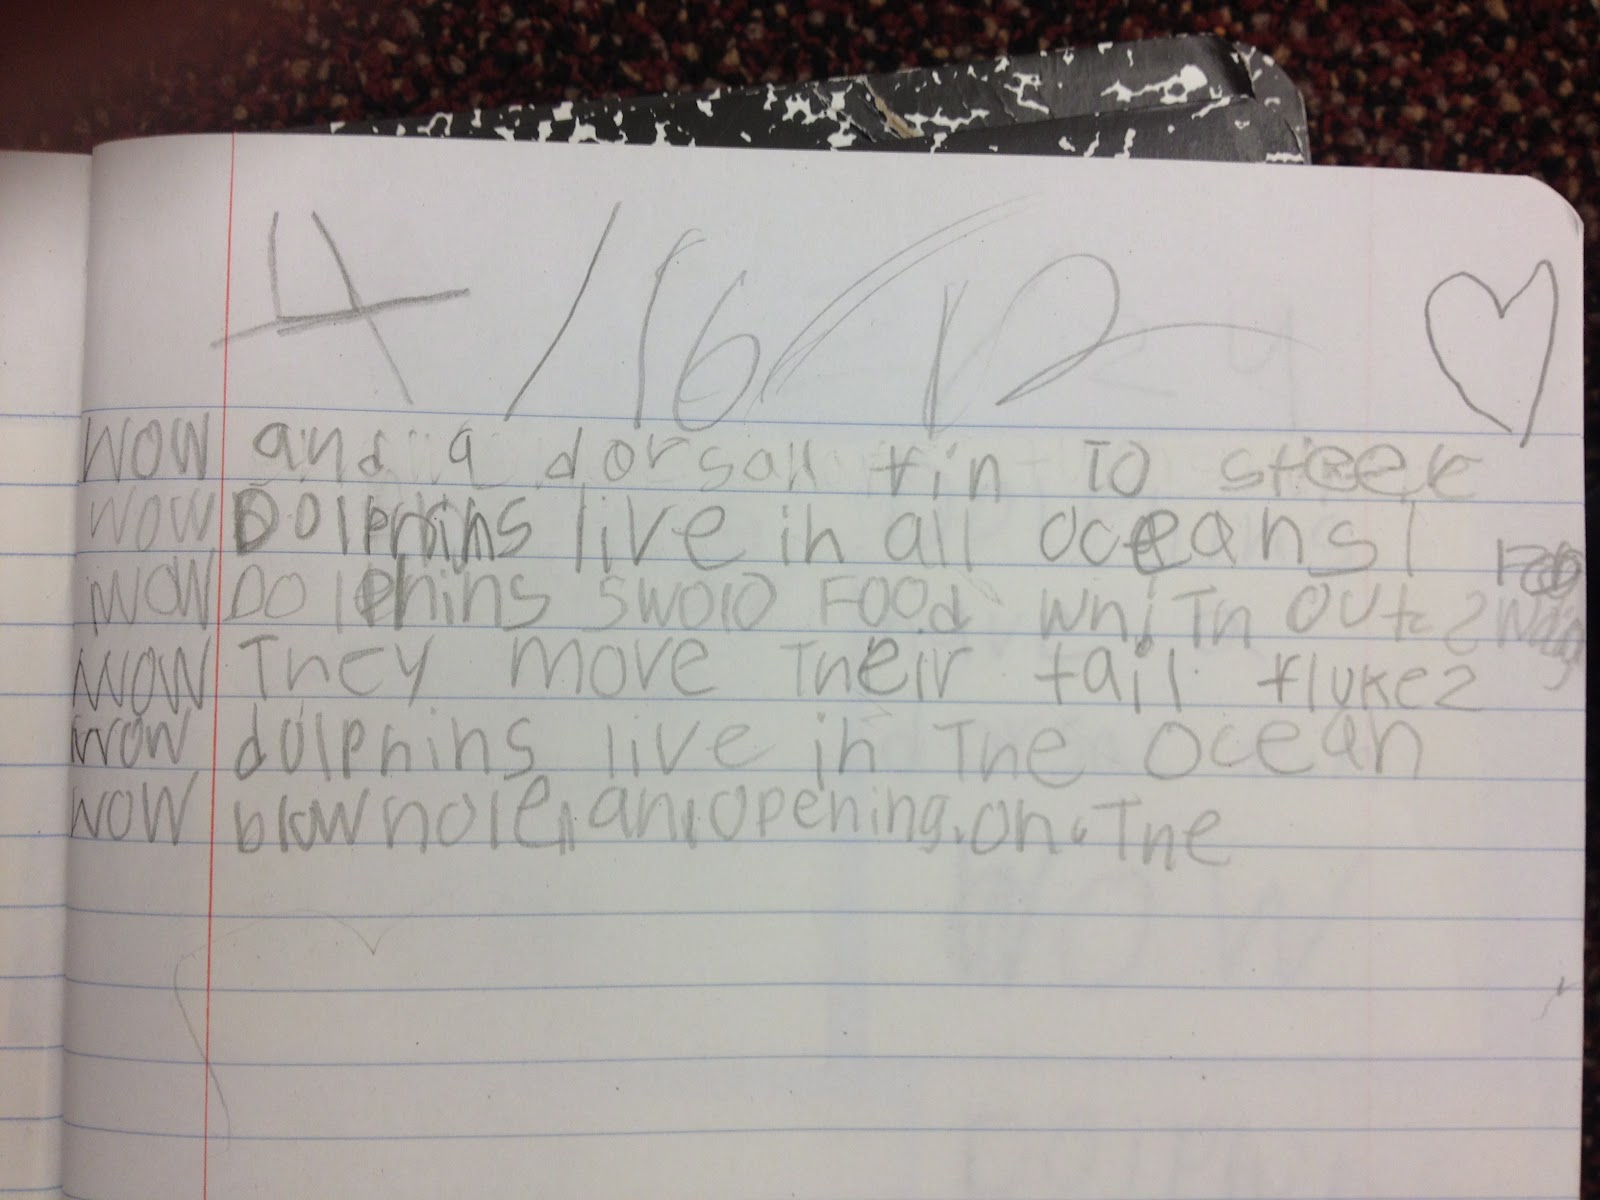 4/16/12
WOW and a dorsall fin TO steer
WOW Dolphins live in all oceans!
WOW Dolphins swolo Food whiTh out
WOW They move Their tail flukes
WOW dolphins live in The Ocean
WOW blowhole, an opening on The